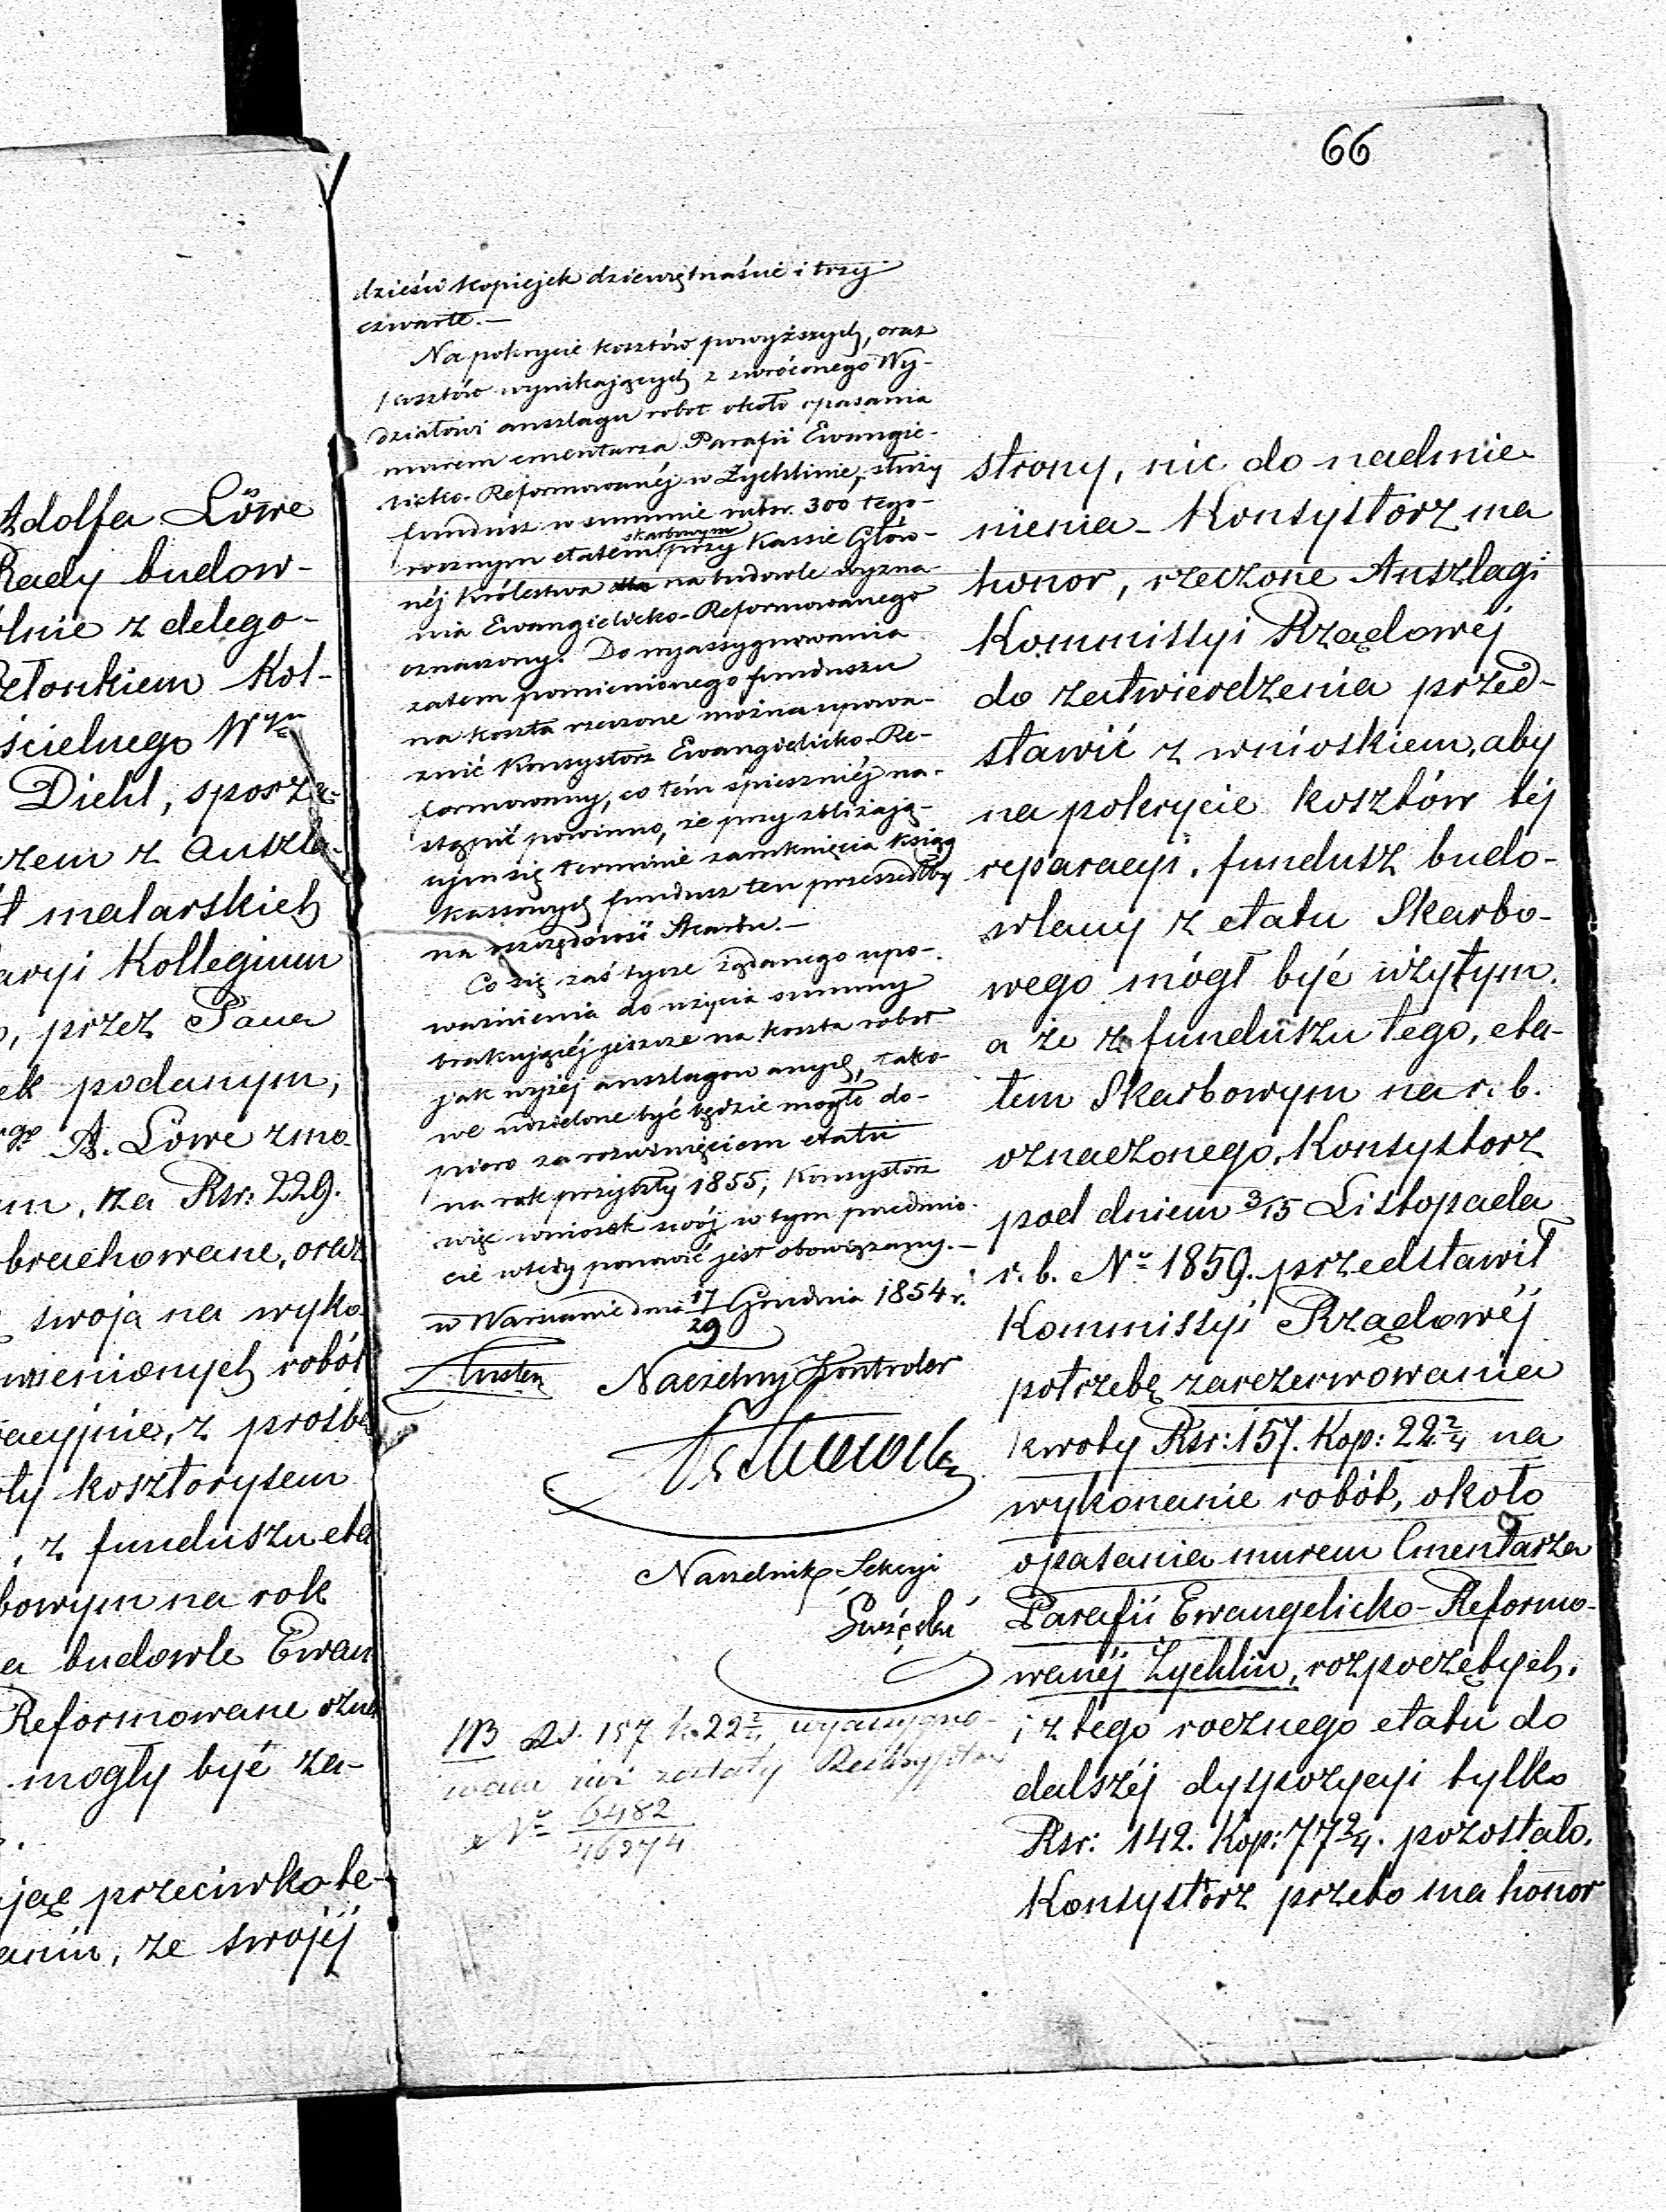 66
Adolfa Löwe
Rady budow-
ólnie z delego-
Członkiem Kol-
ścielnego Wym
Diehl, sporzą-
razem z Auszla-
ót malarskich
aryi Kollegium
, przez Pana
ek podanym,
A. Löwe zmo
m, na Rsr: 229.
brachowane, oraz
swoja na wyko
mienionych robót
acyjnie, z prośbą
ty kosztorysem
, z funduszu eta
bowym na rok
a budowle Ewan
Reformowane ozna
mogły być za-
jąc przeciwko te-
aniu, ze swojéj
dzieści kopiejek dziewiętnaście i trzy
czwarte.—
Na pokrycie kosztów powyższych, oraz
kosztów wynikających z zwróconego Wy-
działowi anszlagu robot około opasania
murem cmentarza Parafii Ewangie-
licko-Reformowanéj w Żychlinie, służy
fundusz w summie rubsr. 300 tego-
rocznym etatem skarbowym przy Kassie Głów-
néj Królestwa na budowle wyzna-
nia Ewangielicko-Reformowanego
oznaczony. Do wyassygnowania
zatem pomienionego funduszu
na koszta rzeczone można upowa-
żnić Konsystorz Ewangielicko-Re-
formowany, co tém śpieszniéj na-
stąpić powinno, że przy zbliżają-
cym się terminie zamknięcia Ksiąg
Kassowych fundusz ten przeszedłby
na oszczędność Skarbu.—
Co się zaś tycze żądanego upo-
ważnienia do użycia summy
brakującéj jeszcze na koszta robot
jak wyżéj anszlagowanych, tako-
we udzielone być będzie mogło do-
piero za rozwinięciem etatu
na rok przyszły 1855, Konsystorz
więc wniosek swój w tym przedmio-
cie wtedy ponowić jest obowiązany.—
w Warszawie dnia 17/29 Grudnia 1854 r.
Naczelny Kontroler
Naczelnik Sekcyi
Święcki
NB Rs. 157 k. 22 2/4 wyassygno-
wane już zostały Reskryptem
No 6482
46274
strony, nic do nadmie-
nienia — Konsystorz ma
honor, rzeczone Anszlagi
Kommissyi Rządowéj
do zatwierdzenia przed-
stawić z wnioskiem, aby
na pokrycie kosztów téj
reparacyi, fundusz budo-
wlany z etatu Skarbo-
wego mógł być użytym.
a że z funduszu tego, eta-
tem Skarbowym na r. b.
oznaczonego, Konsystorz
pod dniem 3/15 Listopada
r. b. No 1859. przedstawił
Kommissyi Rządowéj
potrzebę zarezerwowania
kwoty Rsr: 157. Kop: 22 2/4 na
wykonanie robót, około
opasania murem Cmentarza
Parafii Ewangelicko-Reformo-
wanéj Żychlin, rozpoczętych.
i z tego rocznego etatu do
dalszéj dyspozycyi tylko
Rsr: 142. Kop: 77 2/4. pozostało.
Konsystorz przeto ma honor